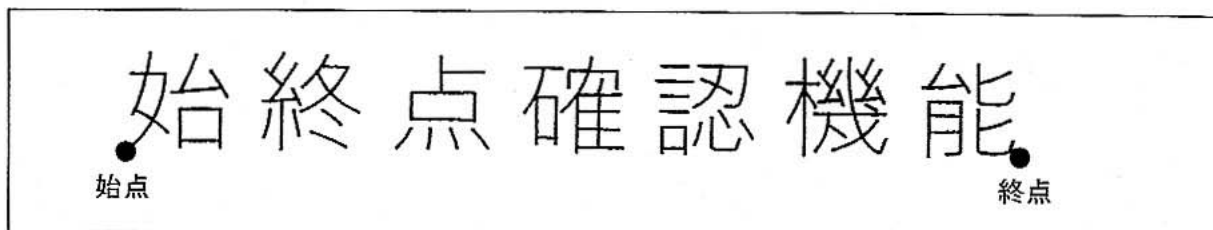 始終点確認機能
始点
終点